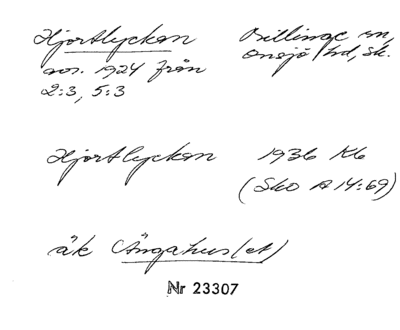 Hjortlyckan Billinge sn,
avs. 1924 från Onsjö hd, Sk.
2:3, 5:3
Hjortlyckan 1936 Kb
(Sko A 14:69)
äk Ängahus(et)
Nr 23307